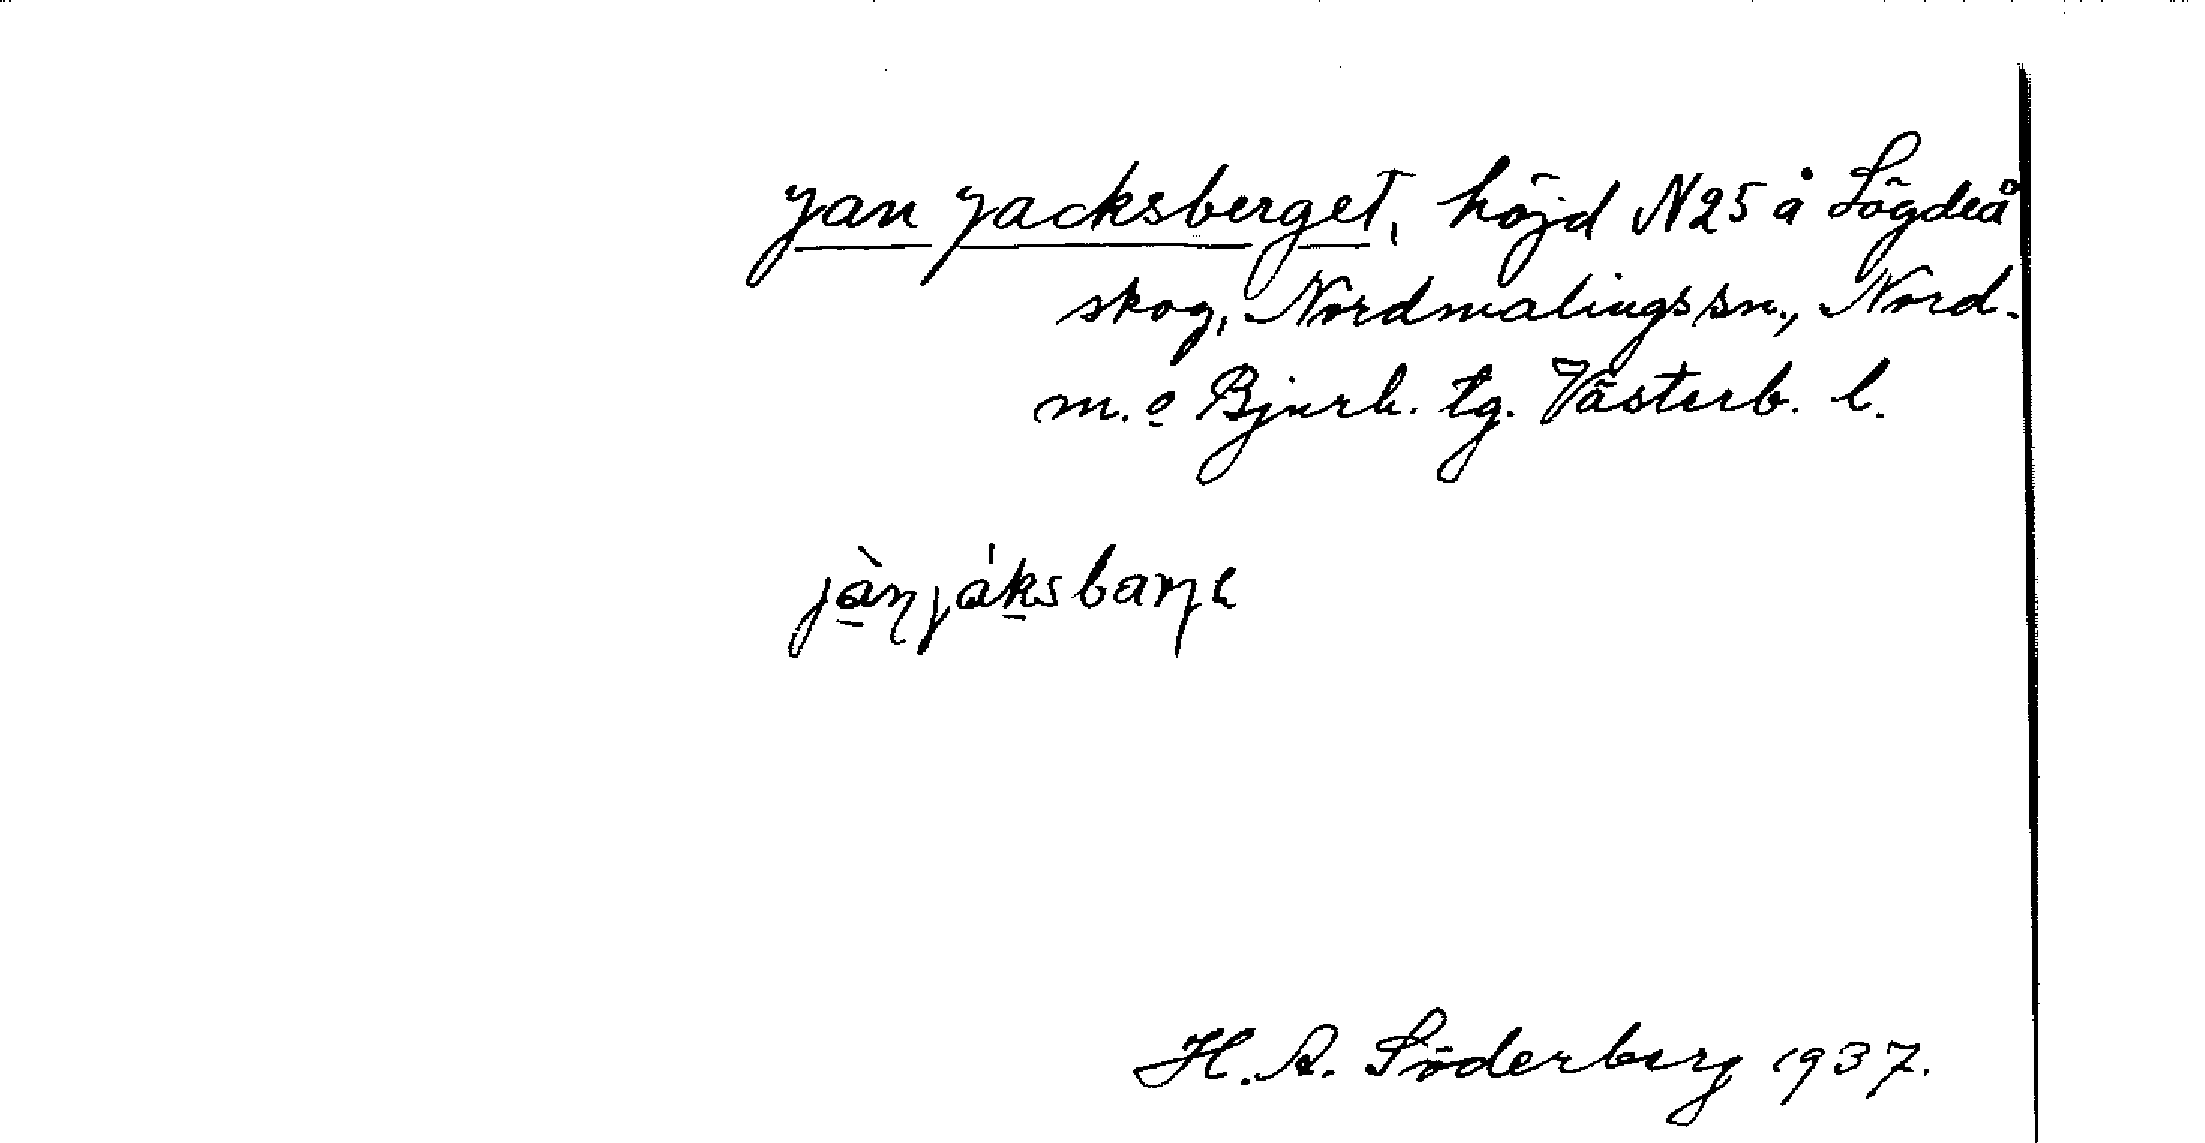 Jan Jacksberget, höjd N25 å Lögdeå
skog, Nordmalings sn., Nord.
m. o Bjurh. tg. Västerb. l.
H. A. Söderberg 1937.